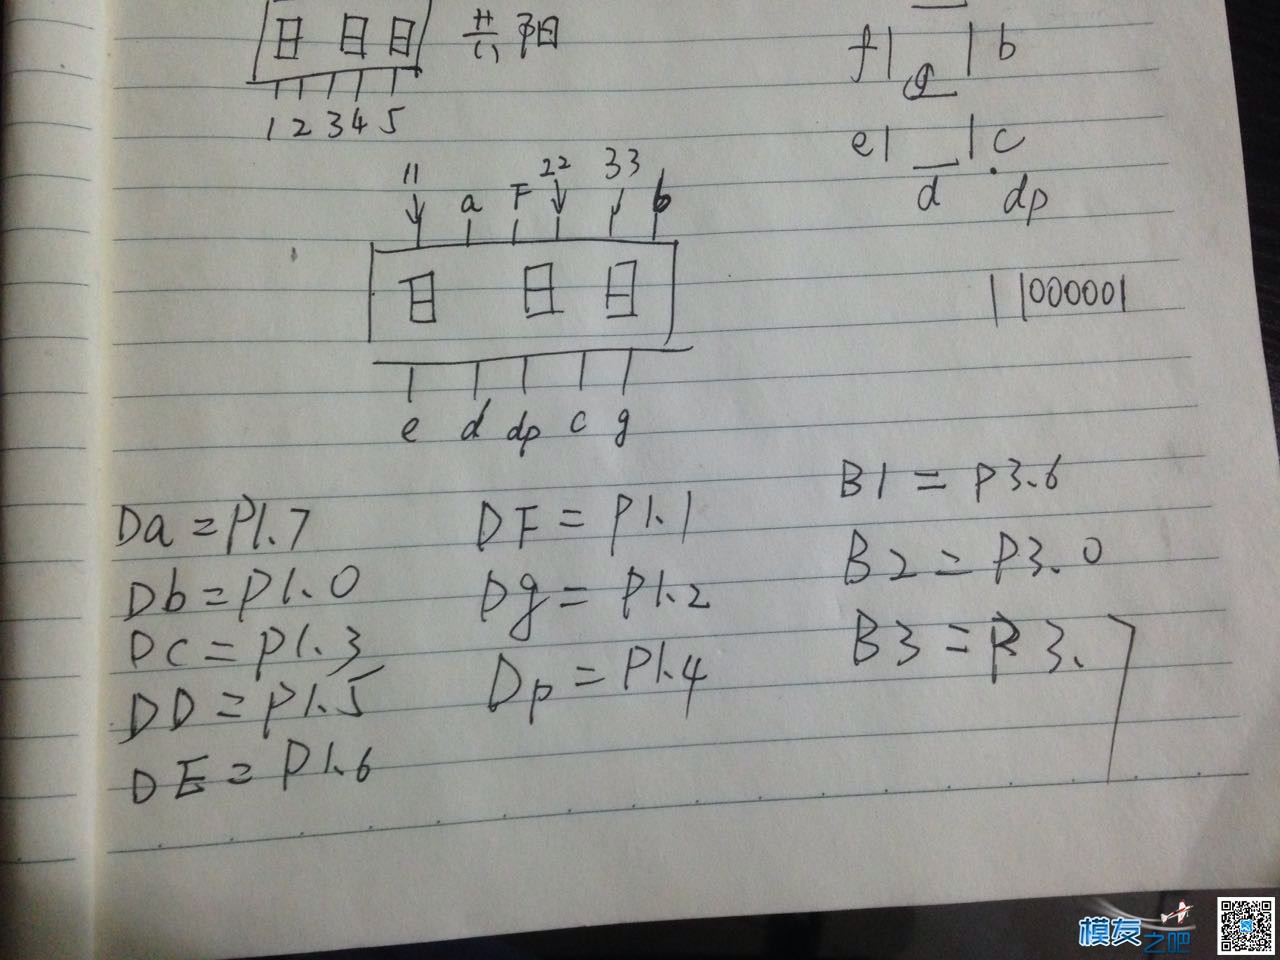 共阳
1 2 3 4 5
f b
g
e c
d dp
11 a F 22 33 b
11000001
e d dp c g
Da=P1.7 DF=P1.1 B1=P3.6
Db=P1.0 Dg=P1.2 B2=P3.0
DC=P1.3 Dp=P1.4 B3=P3.7
DD=P1.5
DE=P1.6
模友之吧